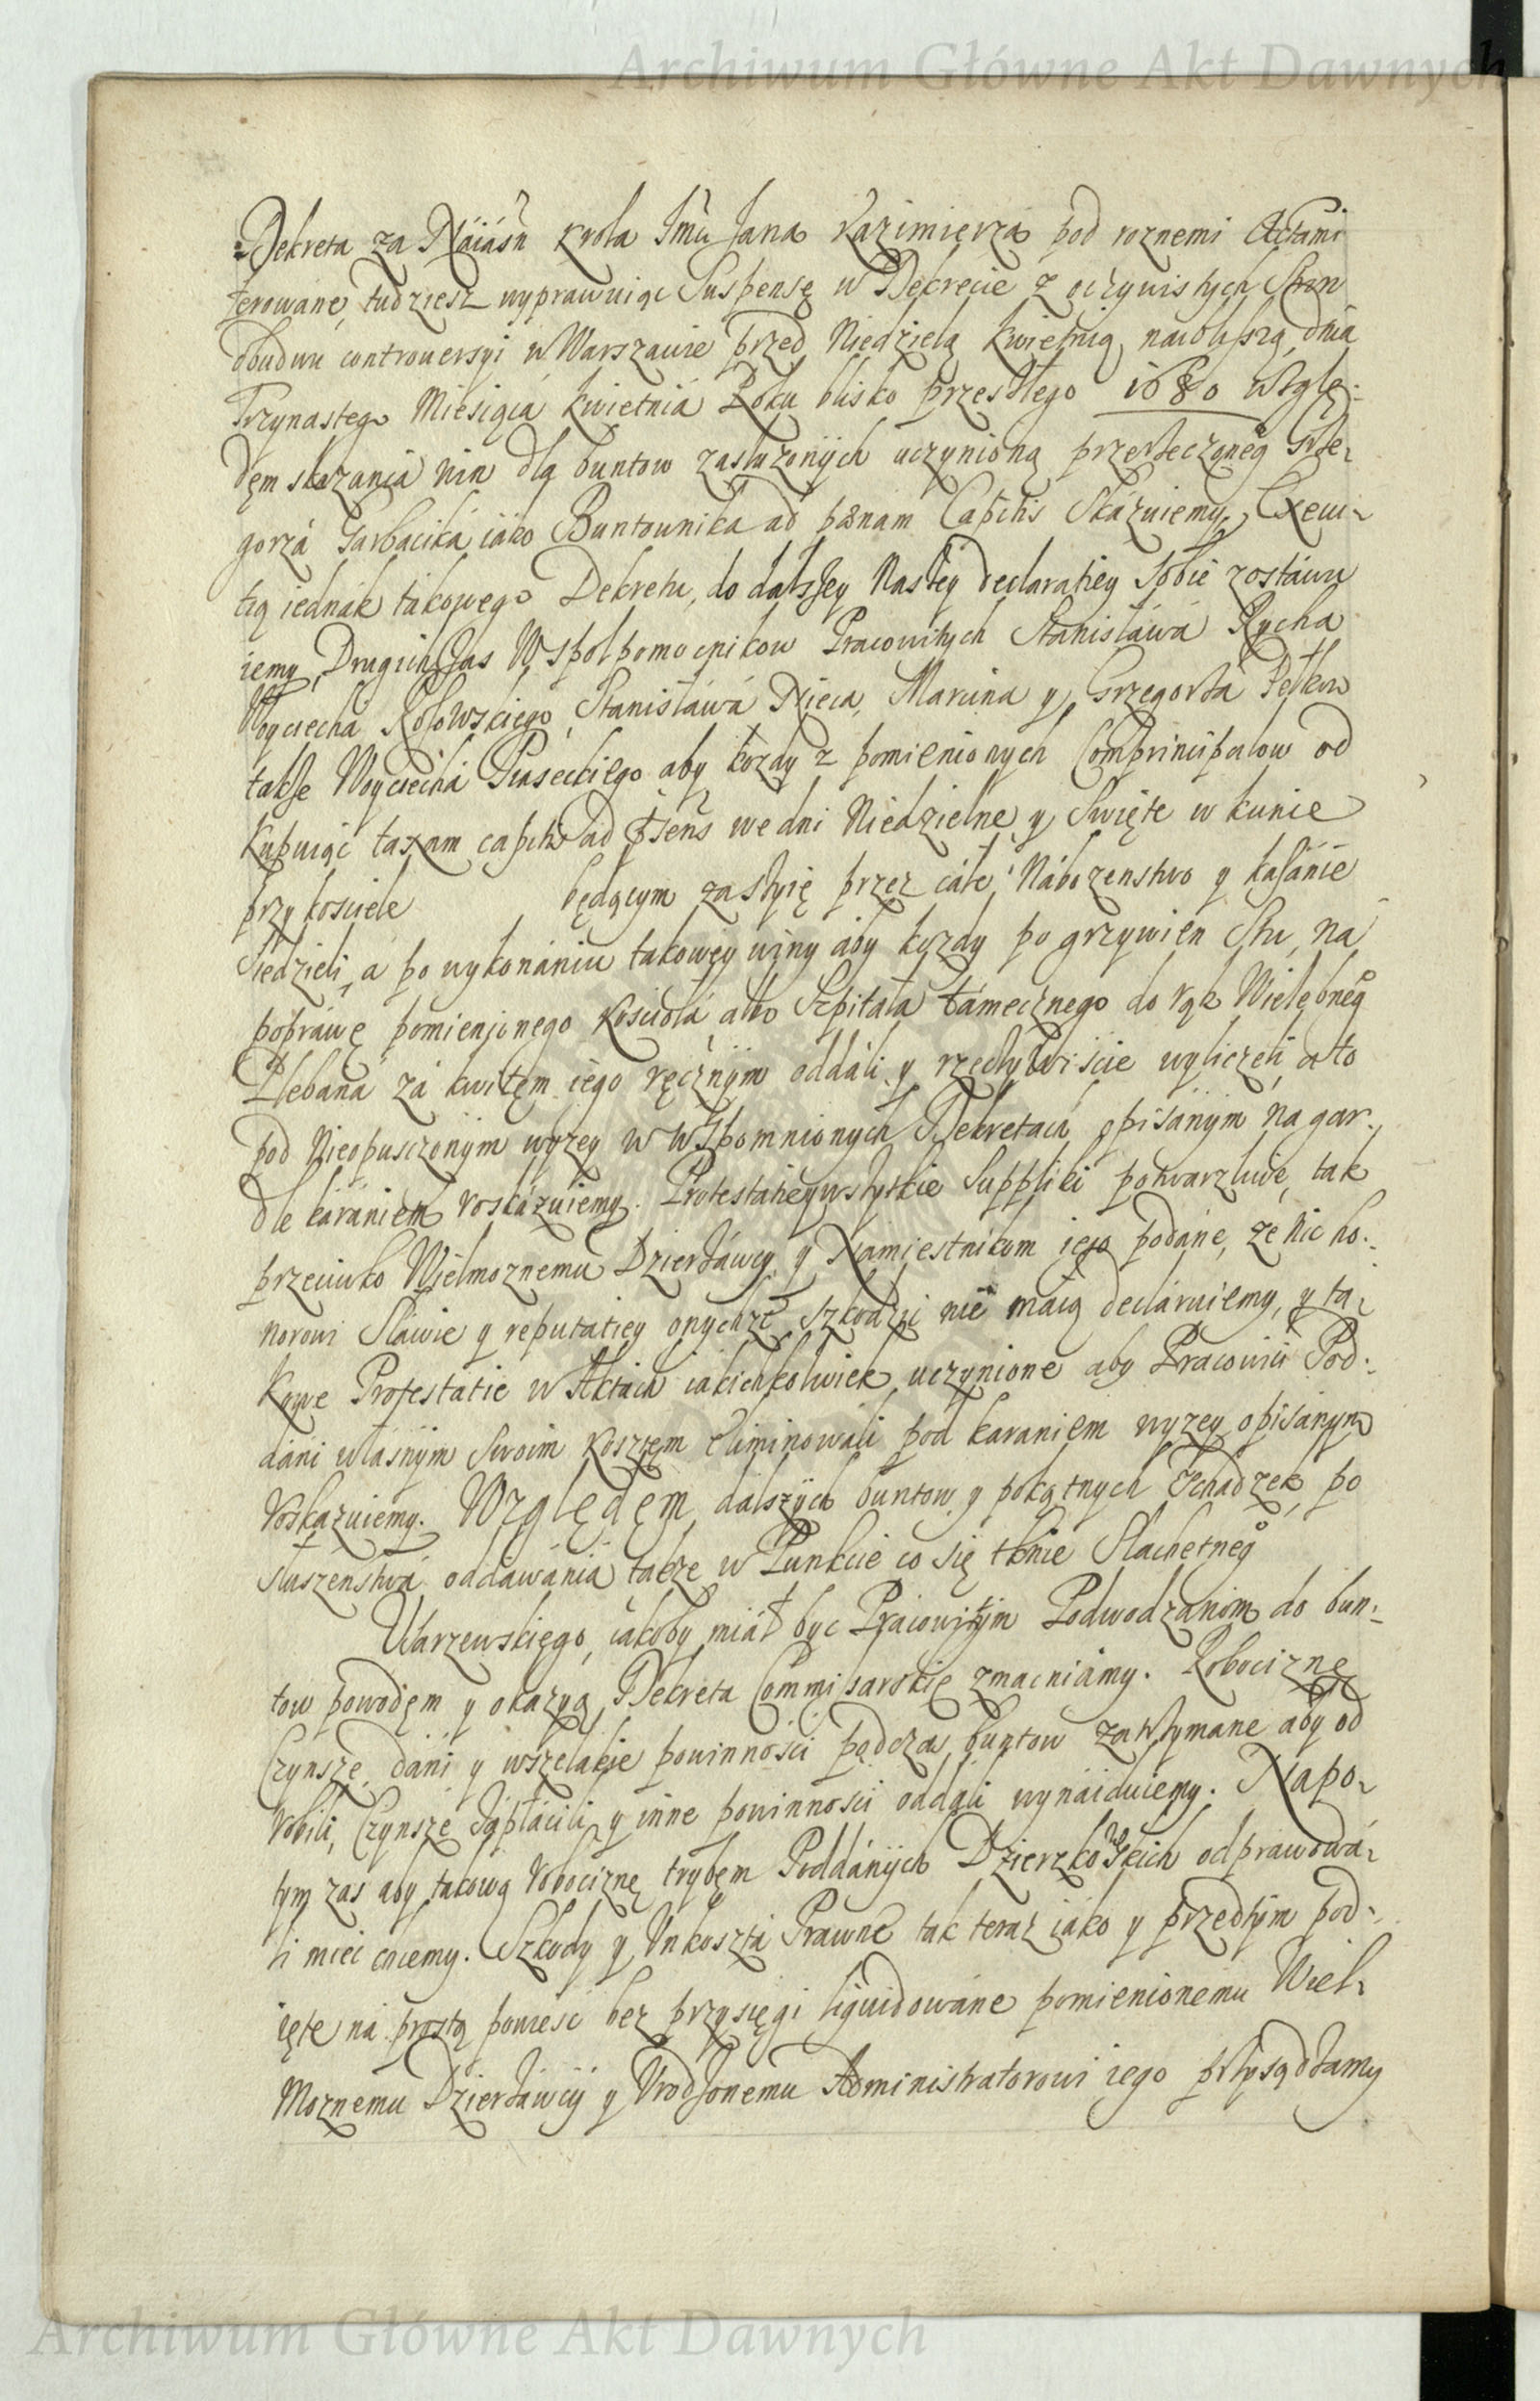 Archiwum Główne Akt Dawnych
Dekreta za Náiásn Krola Jmći Jana Kazimierza pod roznemi Actami
ferowane, tudziesz wyprawuiąc Suspensę w Dekrecie z oczywistych Stron
obudwu controuersyi w Warszawie przed Niedzielą Kwietnią naiblisszą, dnia
Trzynastego Miesiąca Kwietniá Roku blisko przeszłego 1680 wzglę-
dęm skazania win dla buntow zasłużonych uczynioną przerzeczoneg Grze-
gorzá Garbacika iáko Buntownika ad pœnam Capitis Skázuiemy, Exeku-
tią iednák takowego Dekretu, do dalszey Naszey declaratiey Sobie zostáwu
iemy, Drugich zas Wspołpomocnikow Pracowitych Stanisławá Rycha
Woyciechá Rosowskiego, Stanisławá Nieca, Marcina y Grzegorza Pętkow
takze Woyciechá Piaseckiego aby kozdy z pomienionych Comprincipalow od
Kupuiąć taxam capitis ad Psens we dni Niedzielne y Swięte w kunie
przy kosciele będącym zaszyię przez cáłe Nábozenstwo y kazánie
Siedzieli, a po wykonániu takowey winy áby kozdy po grzywien Stu, ná
popráwę pomienionego Kościołá albo Szpitala támecznego do rąk Wielebneg
Plebaná zá kwitęm iego ręcznym oddáli y rzeczywiście wyliczeli, a to
pod Nieopusczonym wyzey w wspomnionych Dekretách opisánym na gar-
dle káraniem roskázuiemy. Protestatiey wszytkie Suppliki potwarzliwe, tak
przeciwko Wielmoznemu Dzierzáwcy y Namiestnikom iego podáne, ze nic ho-
norowi Sławie y reputatiey onychze Szkodzić nie máią declaruiemy, y ta-
kowe Protestatie w Aktách iakichkolwiek uczynione aby Pracowici Pod-
dáni włásnym Swoim kosztem eliminowáli pod karaniem wyzey opisánym
roskazuiemy. Względęm dalszych buntow y pokątnych Schadzek, po
słuszenstwá oddáwániá takze w Punkcie co się tknie Slachetneg
Warzewskiego, iakoby miáł byc Pracowitym Podwodzanom do bun-
tow powodęm y okazyą, Dekreta Commisarskie zmacniámy. Robociznę
Czynsze, dáni y wszelakie powinnosci podczas buntow zatrzymane aby od
robili, Czynsze zápłácili y inne powinnosci oddáli wynáiduiemy. Nápo-
tym zas aby takową robociznę trybem Poddánych Dzierzkowskich odprawowá-
li mieć chcemy. Szkody y Unkosztá Prawne tak teraz iáko y przedtym pod-
ięte ná prostą powieść bez przysięgi liquidowáne pomienionemu Wiel-
moznemu Dzierzáwcy y Urodzonemu Administratorowi iego przysądzamy
Archiwum Główne Akt Dawnych